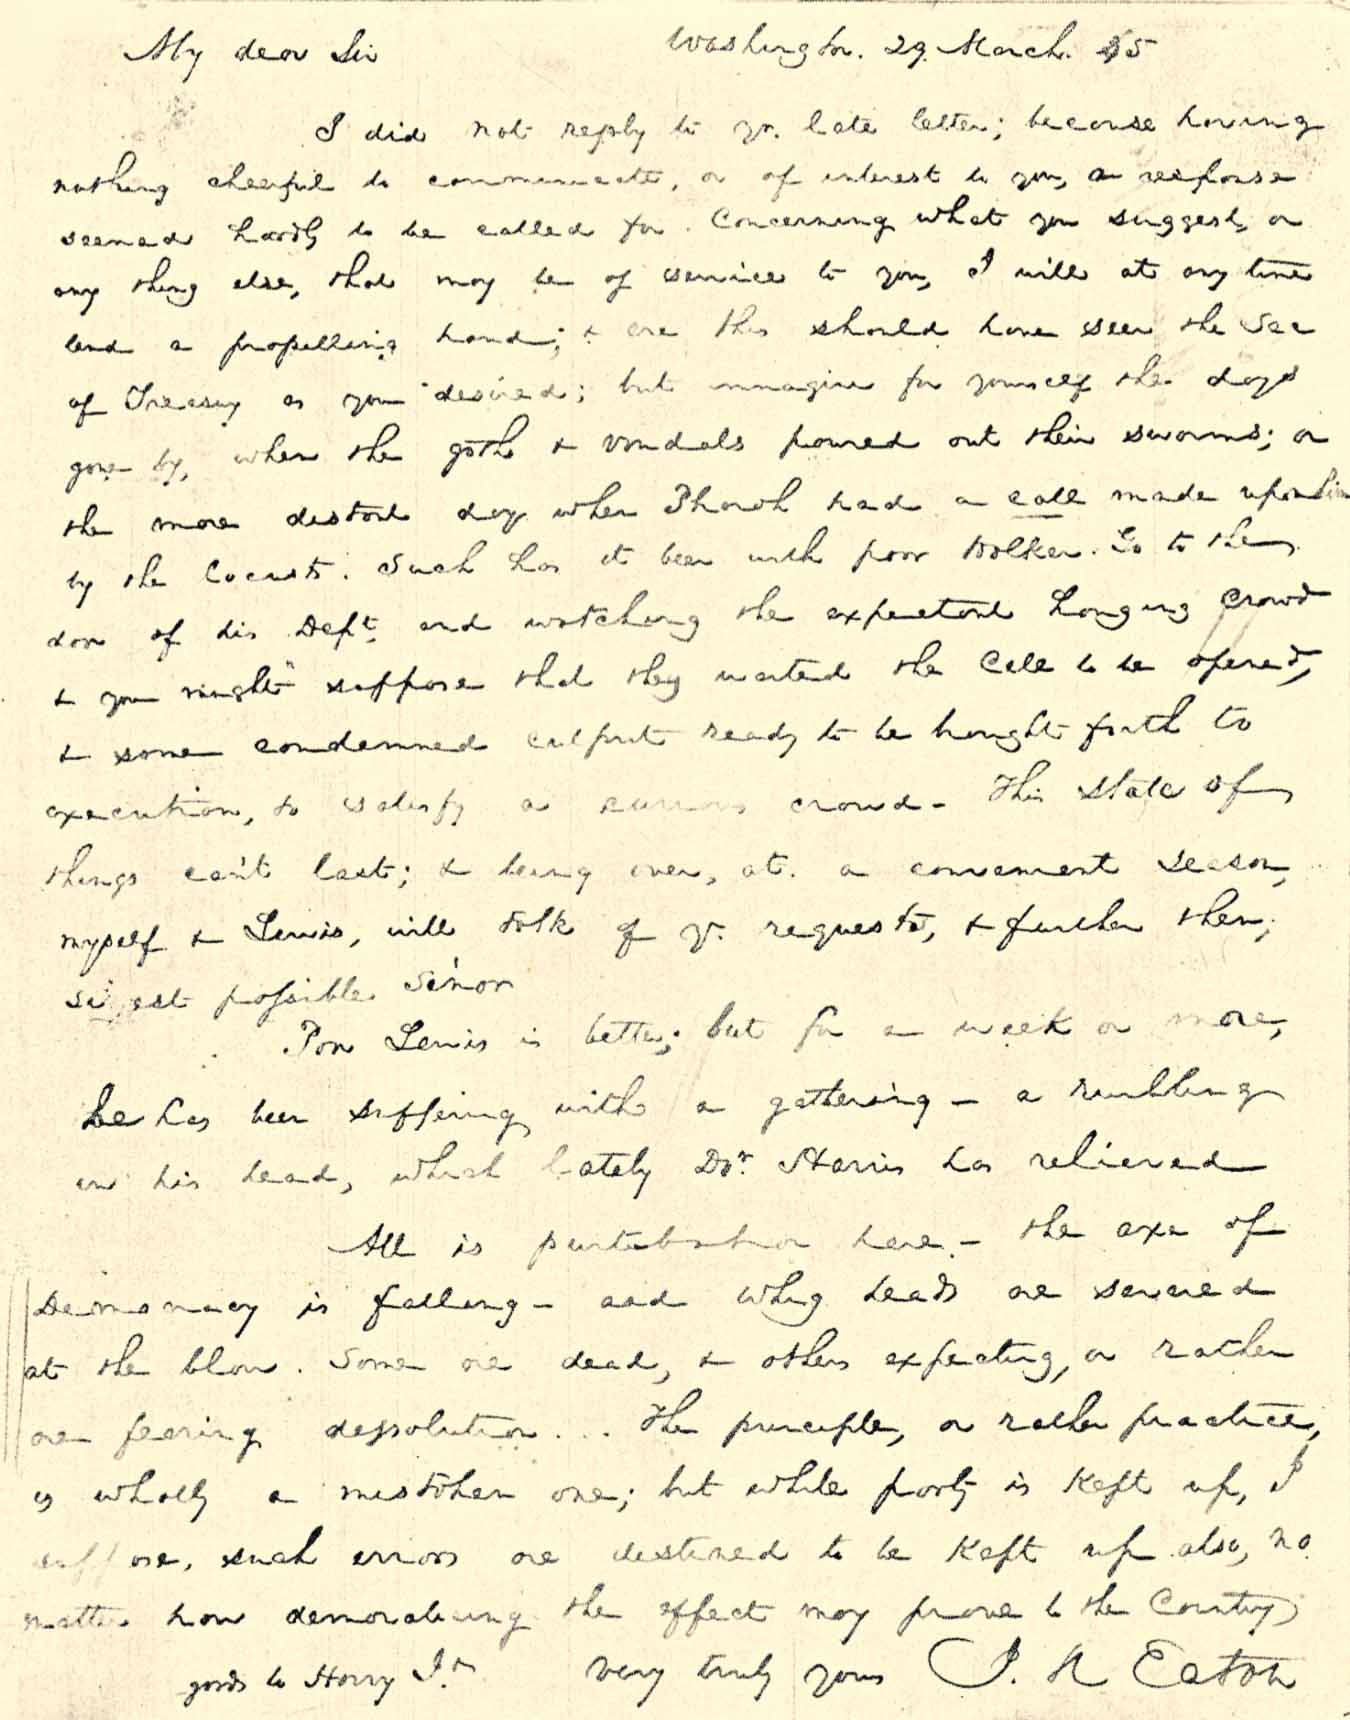 My dear Sir Washington. 29. March. 45
I did not reply to yr. late letter; because having
nothing cheerful to communicate, or of interest to you, a response
seemed hardly to be called for. Concerning what you suggest, or
any thing else, that may be of service to you, I will at any time
lend a propelling hand; & ere this should have seen the Sec
of Treasuy as you desired; but immagine for yourself the days
gone by, when the goths & vandals poured out their swarms; or
the more distant day when Pharoh had a call made upon him
by the Locusts. Such has it been with poor Walker. Go to the
door of his Dept. and watching the expectant longing crowd
& you might suppose that they wanted the Cell to be opened,
& some condemned culprit ready to be brought forth to
execution, to satisfy a curious crowd - This state of
things can't last; & being over, at. a convenient season,
myself & Lewis, will talk of yr. requests, & further then;
si est possible Senor
Poor Lewis is better; but for a week or more,
he has been suffering with a gathering - a rumbling
in his head, which lately Dor. Harris has relieved
All is perturbation here - the axe of
Democracy is falling - and Whig heads are severed
at the blow. Some are dead, & others expecting, or rather
are fearing dessolution ... The principle, or rather practice,
is wholly a mistaken one; but while party is kept up, I
suppose, such errors are destined to be kept up also, no
matter how demoralising the effect may prove to the Country
to Harry Jr. very truly yours J. H Eaton